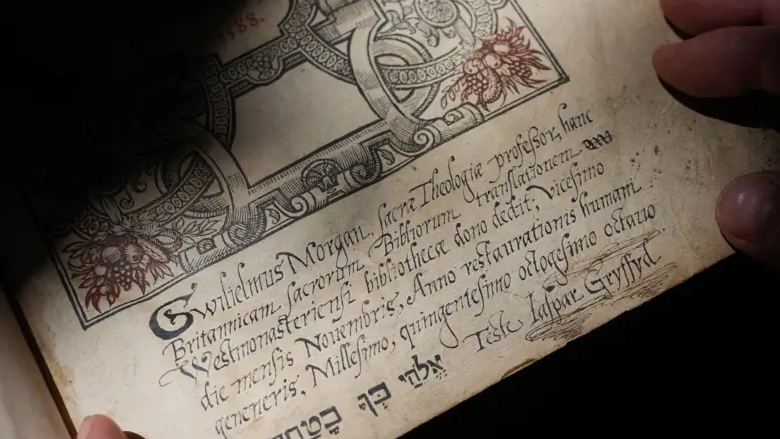 1588.
Gwilielmus Morgan, sacræ Theologiæ professor, hanc
Britannicam sacrorum Bibliorum translationem
Westmonasteriensi bibliothecæ dono dedit, vicesimo
die mensis Nouembris, Anno restaurationis humani
geneneris, Millesimo, quingentesimo octogesimo octauo
Teste Iaspar Gryffyd.
אֱלֹהַי בְּךָ